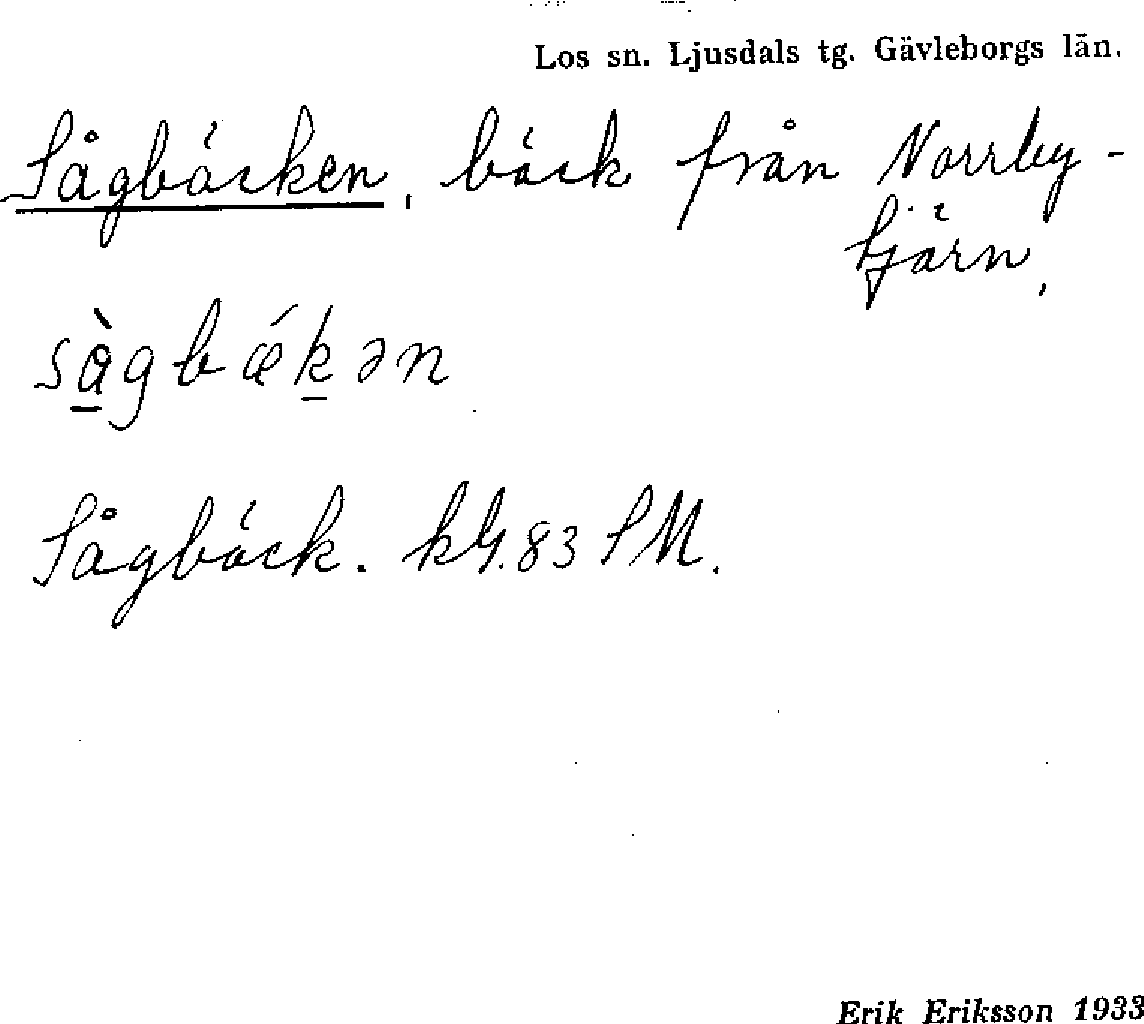 Los sn. Ljusdals tg. Gävleborgs län.
Sågbäcken, bäck från Norrby-
tjärn,
sàgbǽkən
Sågbäck. kG. 83 SM.
Erik Eriksson 1933